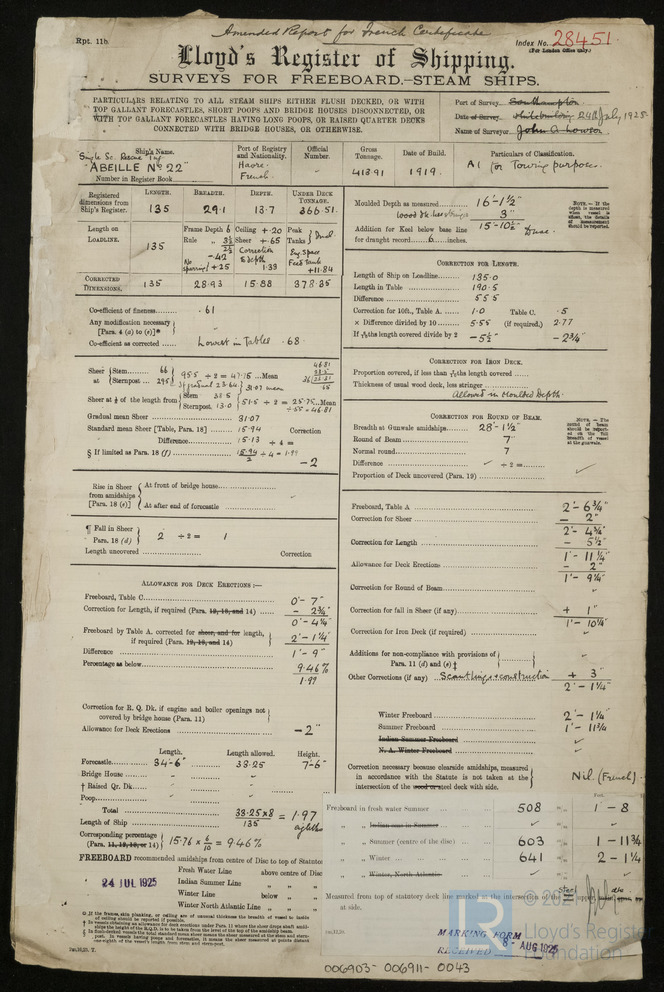 Amended Report for French Certificate
Rpt. 11b.
Index No. 28451.
(For London Office only.)
Lloyd's Register of Shipping.
SURVEYS FOR FREEBOARD.—STEAM SHIPS.
PARTICULARS RELATING TO ALL STEAM SHIPS EITHER FLUSH DECKED, OR WITH
TOP GALLANT FORECASTLES, SHORT POOPS AND BRIDGE HOUSES DISCONNECTED, OR
WITH TOP GALLANT FORECASTLES HAVING LONG POOPS, OR RAISED QUARTER DECKS
CONNECTED WITH BRIDGE HOUSES, OR OTHERWISE.
Port of Survey Southampton
Date of Survey Whilebuilding 24th July, 1925
Name of Surveyor John A. Howson
Ship's Name.
Single Sc. Rescue Tug
"ABEILLE No 22"
Number in Register Book
Port of Registry and Nationality.
Havre
French
Official Number.
Gross Tonnage.
413.91
Date of Build.
1919.
Particulars of Classification.
A1 for Towing purposes.
Registered dimensions from Ship's Register.
LENGTH. BREADTH. DEPTH. UNDER DECK TONNAGE.
135 29.1 13.7 366.51
Length on LOADLINE. 135
Frame Depth 6 Ceiling + .20 Peak
Rule " 3½ Sheer + .65 Tanks
2½ Correction Eng. Space
- .42 to depth Feed tank
No sparring + .25 1.33 + 11.84
CORRECTED DIMENSIONS. 135 28.93 15.88 378.35
Moulded Depth as measured 16'-1½"
Wood dk. less stringer 3"
Addition for Keel below base line 15-10½"
for draught record 6 inches.
NOTE.—If the depth is measured when vessel is afloat, the details of measurement should be reported.
Co-efficient of fineness .61
Any modification necessary
[Para. 4 (a) to (e)]*
Co-efficient as corrected Lowest in Tables .68
CORRECTION FOR LENGTH.
Length of Ship on Loadline 135.0
Length in Table 190.5
Difference 55.5
Correction for 10ft., Table A. 1.0 Table C. .5
× Difference divided by 10 5.55 (if required.) 2.77
If 6/10ths length covered divide by 2 - 5½" - 2¾"
Sheer at Stem 66
Sternpost 29½
95.5 ÷ 2 = 47.75 Mean
If gradual 31.07 mean
Sheer at ⅛ of the length from Stem 38.5
Sternpost 13.0
51.5 ÷ 2 = 25.75 Mean
÷ .55 = 46.81
Gradual mean Sheer 31.07
Standard mean Sheer [Table, Para. 18] 15.94 Correction
Difference 15.13 ÷ 4 =
§ If limited as Para. 18 (f) 15.94/2 ÷ 4 = 1.99
- 2
CORRECTION FOR IRON DECK.
Proportion covered, if less than 7/10ths length covered
Thickness of usual wood deck, less stringer
Allowed in Moulded Depth.
CORRECTION FOR ROUND OF BEAM.
Breadth at Gunwale amidships 28'-1½"
Round of Beam 7"
Normal round 7
Difference ÷ 2 =
Proportion of Deck uncovered (Para. 19)
NOTE.—The round of beam should be reported on the full breadth of vessel at the gunwale.
Rise in Sheer from amidships [Para. 18 (e)]
At front of bridge house
At after end of forecastle
¶ Fall in Sheer
Para. 18 (d) 2 ÷ 2 = 1
Length uncovered Correction
ALLOWANCE FOR DECK ERECTIONS:—
Freeboard, Table C. 0'- 7"
Correction for Length, if required (Para. 12, 13, and 14) - 2¾"
0'- 4¼"
Freeboard by Table A. corrected for sheer, and for length,
if required (Para. 12, 13, and 14) 2'- 1¼"
Difference 1'- 9"
Percentage as below 9.46%
1.99
Correction for R. Q. Dk. if engine and boiler openings not
covered by bridge house (Para. 11)
Allowance for Deck Erections - 2"
Length. Length allowed. Height.
Forecastle 34'-6" 33.25 7'-6"
Bridge House
† Raised Qr. Dk.
Poop
Total 33.25 × 8
Length of Ship 135 = 1.97 eighths
Corresponding percentage
(Para. 11, 12, 13, or 14) 15.76 × 6/10 = 9.46%
Freeboard, Table A 2'- 6¾"
Correction for Sheer - 2"
2'- 4¾"
Correction for Length - 5½"
1'- 11¼"
Allowance for Deck Erections - 2"
1'- 9¼"
Correction for Round of Beam
Correction for fall in Sheer (if any) + 1"
1'- 10¼"
Correction for Iron Deck (if required)
Additions for non-compliance with provisions of
Para. 11 (d) and (e) ‡
Other Corrections (if any) Scantlings & construction + 3"
2'- 1¼"
Winter Freeboard 2'- 1¼"
Summer Freeboard 1'- 11¾"
Indian Summer Freeboard
N. A. Winter Freeboard
Correction necessary because clearside amidships, measured
in accordance with the Statute is not taken at the
intersection of the wood or steel deck with side.
Nil. (French)
FREEBOARD recommended amidships from centre of Disc to top of Statutory
Fresh Water Line above centre of Disc
Indian Summer Line " "
Winter Line below "
Winter North Atlantic Line " "
24 JUL 1925
Feet.
Freeboard in fresh water Summer 508 1 - 8
" " Indian seas in Summer
" " Summer (centre of disc) 603 1 - 11¾
" " Winter 641 2 - 1¼
" " Winter, North Atlantic
Measured from top of statutory deck line marked at the intersection of the steel upper
at side.
MARKING FORM
RECEIVED 8 - AUG 1925
© 2021
LR
Lloyd's Register
Foundation
006903- 006911- 0043